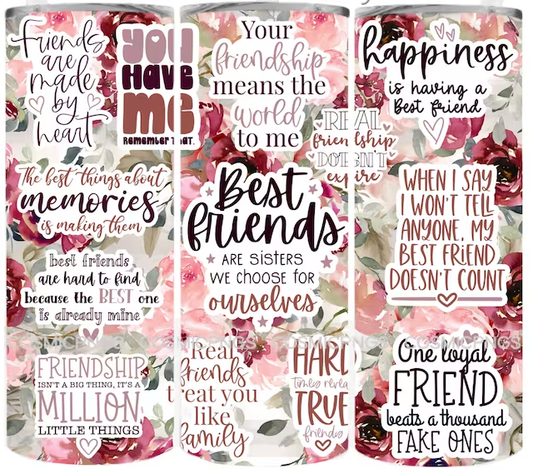 Friends
are
made
by
heart
YOU
HAVE
ME
REMEMBER THAT.
Your
friendship
means the
world
to me
happiness
is having a
Best friend
REAL
friendship
DOESN'T
expire
The best things about
memories
is making them
Best
friends
ARE SISTERS
WE CHOOSE FOR
ourselves
WHEN I SAY
I WON'T TELL
ANYONE, MY
BEST FRIEND
DOESN'T COUNT
best friends
are hard to find
because the BEST one
is already mine
FRIENDSHIP
ISN'T A BIG THING, IT'S A
MILLION
LITTLE THINGS
Real
friends
treat you
like
family
HARD
TRUE
One loyal
FRIEND
beats a thousand
FAKE ONES